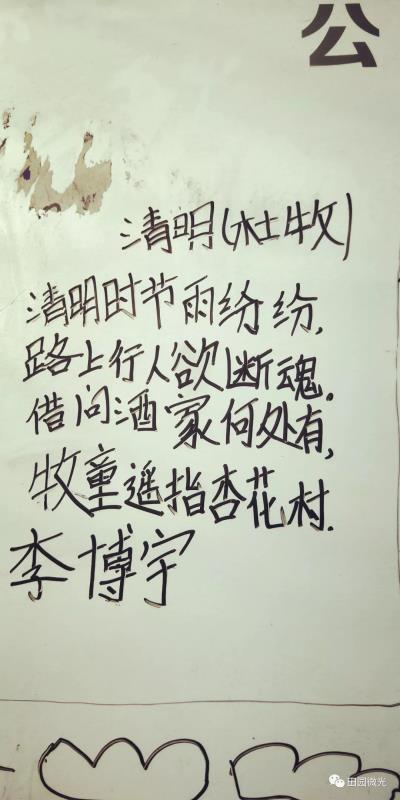 公
清明(杜牧)
清明时节雨纷纷,
路上行人欲断魂.
借问酒家何处有,
牧童遥指杏花村.
李博宇
田园微光